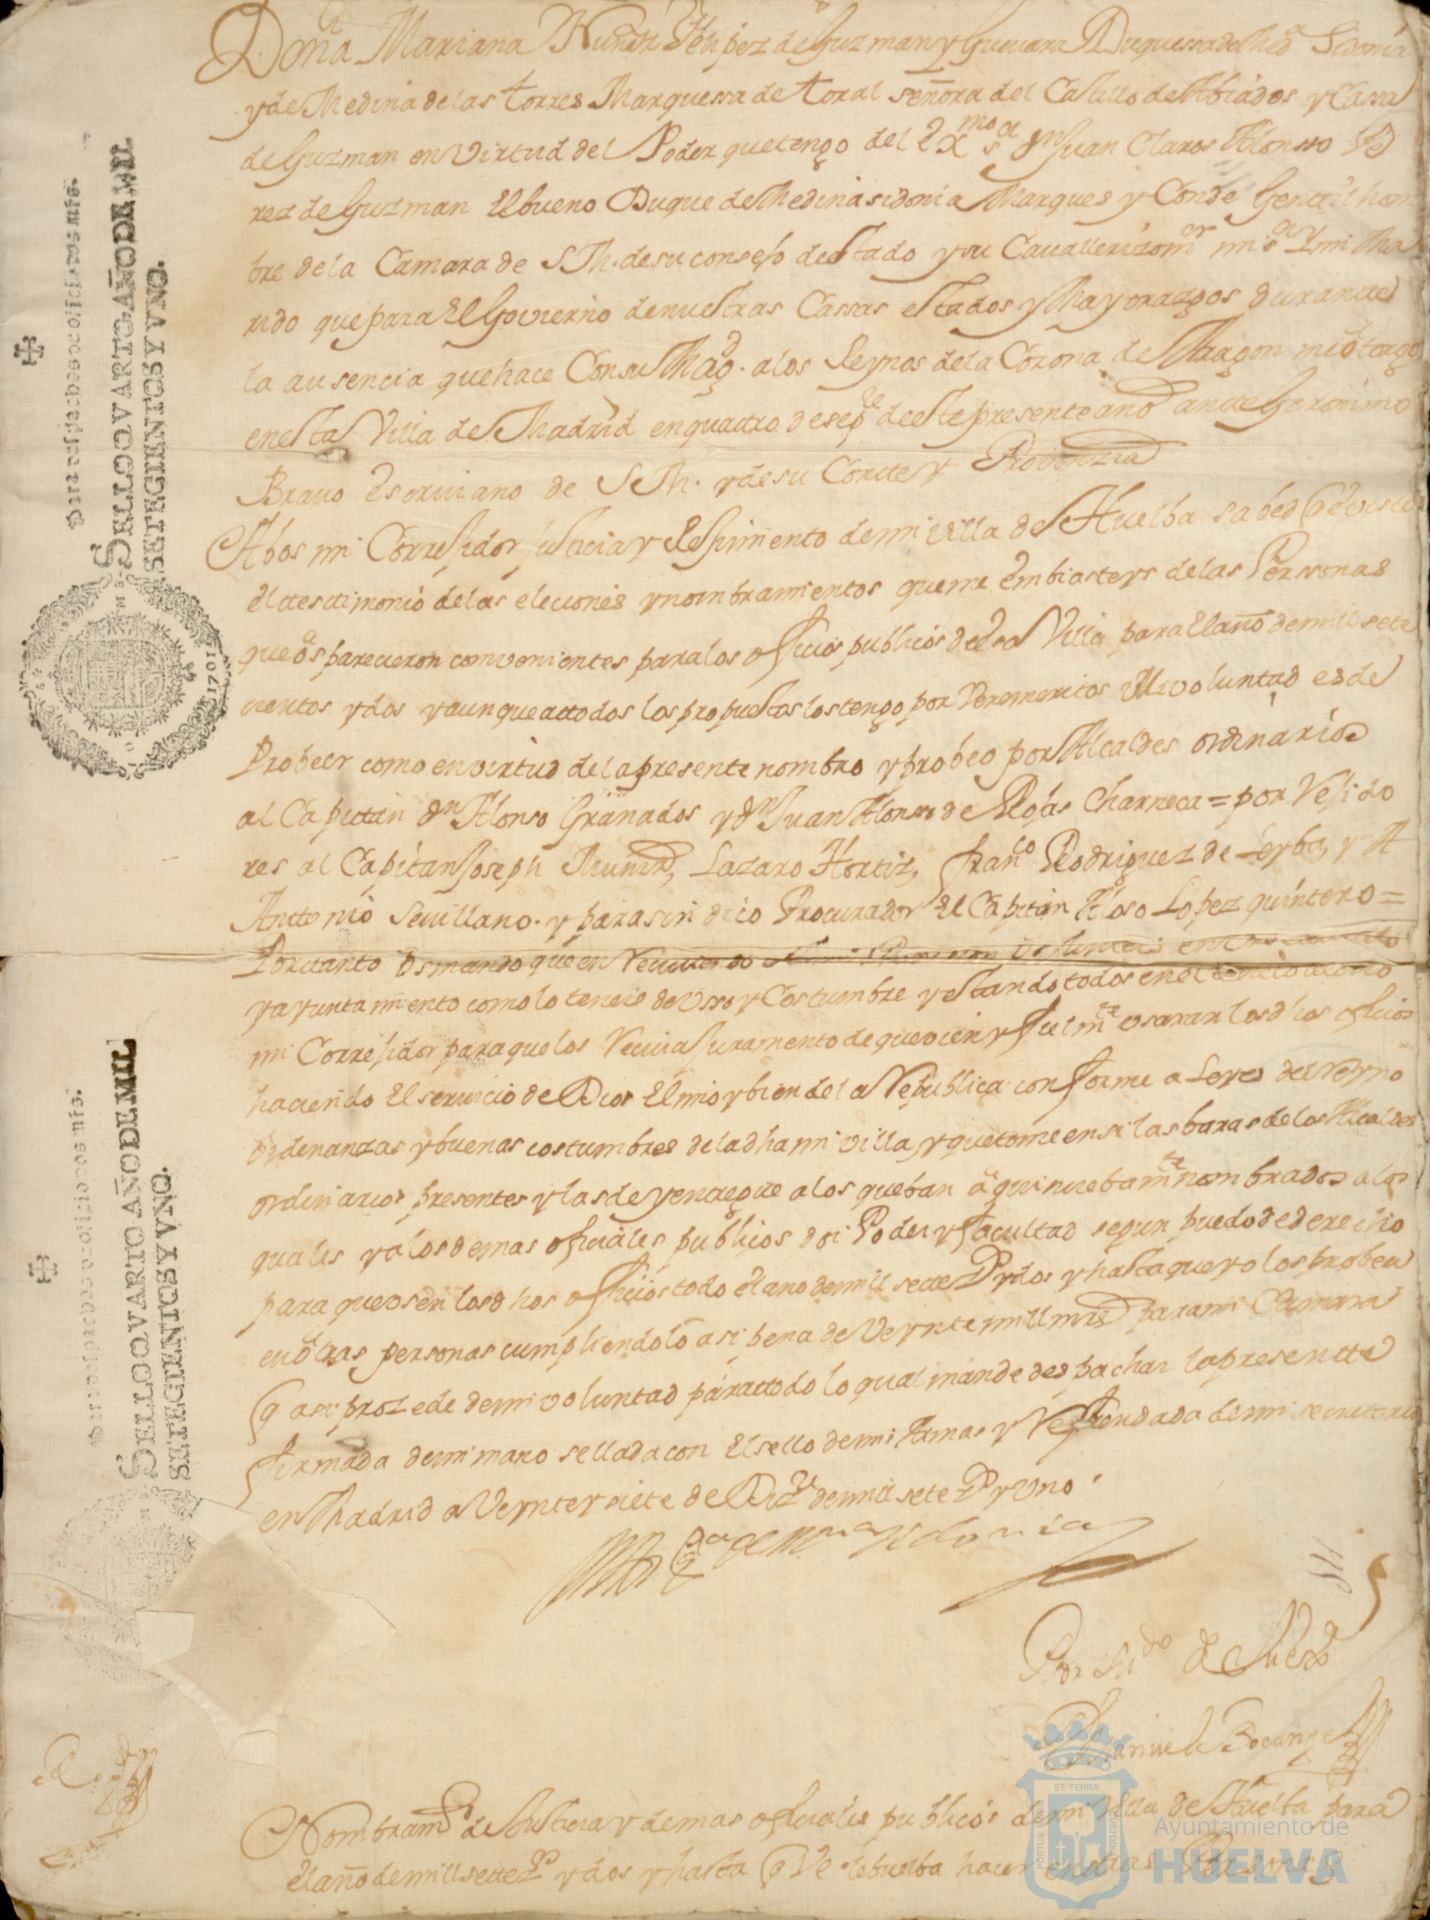 Doña Mariana Nunez Phelipez de Guzman y Guevara Duquessa de Med.ª Sidonia
y de Medina de las torres Marquessa de toral señora del Castillo de Abiados y Cassa
de Guzman en Virtud del Poder que tengo del Exmo s.r Dn Juan Claros Alonsso Pe
rez de Guzman El bueno Duque de Medinasidonia Marques y Conde Gentilhom
bre de la Camara de S.M. de su consejo de estado y su Cavallerizo m.or mi s.r y mi Ma
rido que para El Govierno de nuestras Cassas estados y Mayorazgos durante
la ausencia que hace Con su Mag.d a los Reynos de la Corona de Aragon me otorgó
en esta Villa de Madrid en quattro de sep.re de este presente año ante Geronimo
Bravo Escriviano de S.M. y de su Corte y Provinzia
A bos mi Correjidor Justicia y Rejimiento de mi villa de Huelba sabed he visto
El testimonio de las eleciones y nombramientos que me embiasteys de las Personas
que os parecieron convenientes para los oficios publicos de essa Villa para el año de mill sete
cientos y dos y aunque a todos los propuestos los tengo por Venemeritos Mi voluntad es de
Probeer como en virtud de la presente nombro y probeo por Alcaldes ordinarios
al Capitan dn Alonso Granados y dn Juan Alonso de Rojas Charneca = por Rejido
res al Capitan Joseph Muniz, Lazaro Hortiz, fran.co Rodriguez de Leyba, y A
Anttonio Sevillano. y para sindico Procurador El Capitan Al.o Lopez quintero =
Por tanto os mando que en Reciviendo
y ayuntamiento como lo teneis de Usso y Costumbre y estando todos en el
mi Correjidor para que los Reciva Juramento de que vien y fielm.te usaran los dhos oficios
haciendo El servicio de Dios El mio y bien de la Republica conforme a Leyes del Reyno
ordenanzas y buenas costumbres de la dha mi villa, y que tome en si las baras de los Alcaldes
ordinarios presentes y las de y entregue a los que ban aqui nuebam.te nombrados a los
quales y a los demas oficiales publicos doi Poder y facultad segun puedo de derecho
para que usen los dhos oficios todo el año de mill sette z.os y dos y hasta que yo los probea
en otras personas cumpliendolo asi pena de Veynte mill mrs para mi Camara
q asi prozede de mi voluntad para todo lo qual mande despachar la presentte
firmada de mi mano sellada con El sello de mis Armas y Refrendada de mi secretario
en Madrid a Veynte y siete de Diz.re de mill sete z.os y Uno
Por su m.do de su ex.ª
Manuel de Bocangel
Nombram.to de Justicia y demas oficiales publicos de mi Villa de Huelba para
el año de mill sette z.os y dos y hasta q V.E. le buelba hacer en otras Personas
Para despachos de oficio dos mrs.
SELLO QVARTO AÑO DE MIL
SETECIENTOS Y VNO.
1701
Para despachos de oficio dos mrs.
SELLO QVARTO AÑO DE MIL
SETECIENTOS Y VNO.
Ayuntamiento de
HUELVA